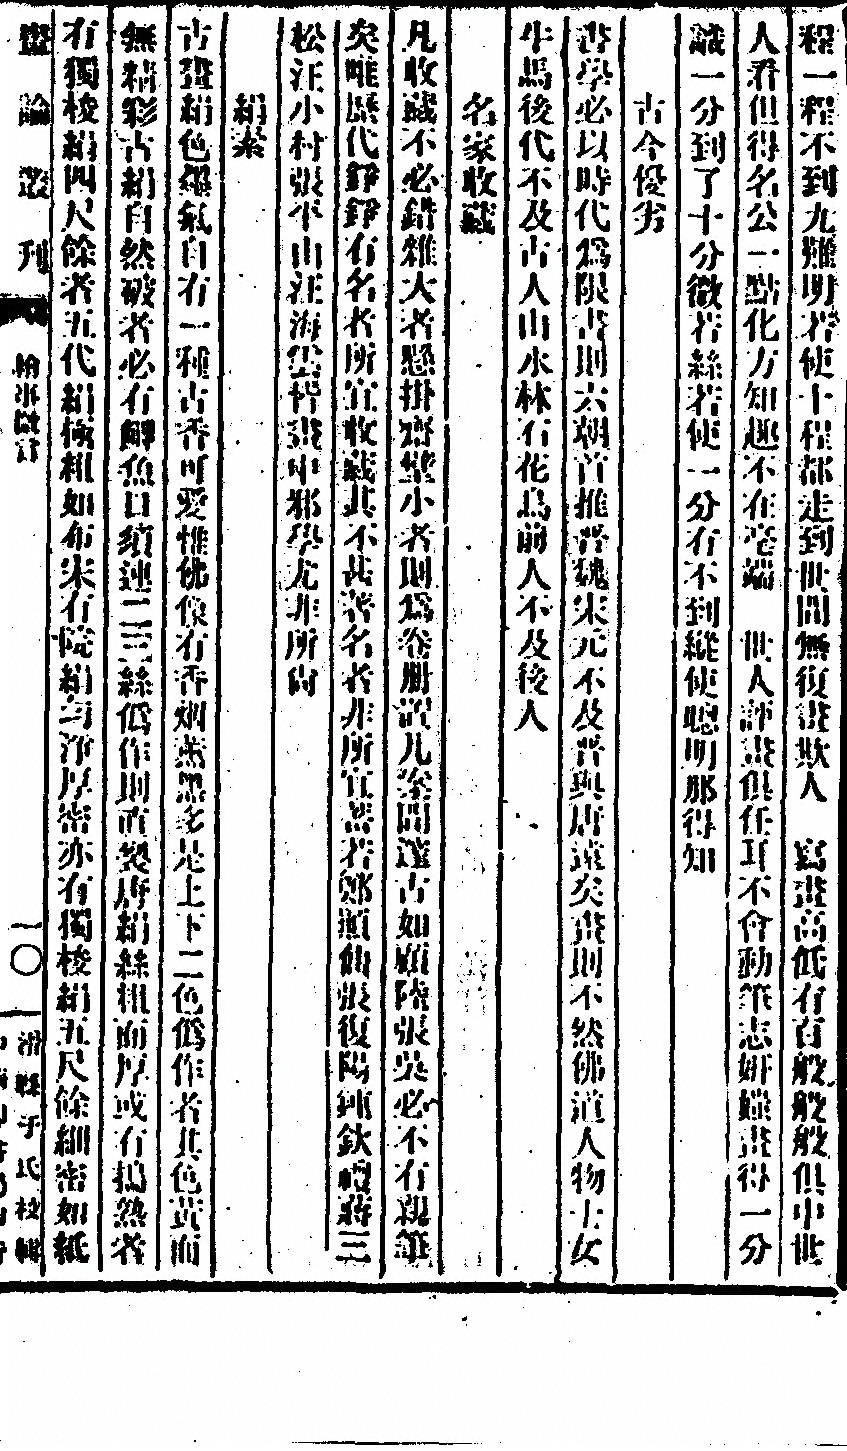 程一程不到九難明若使十程都走到世間無復畫欺人　寫畫高低有百般般般俱中世
人看但得名公一點化方知趣不在毫端　世人評畫俱任耳不會動筆志妍媸畫得一分
誠一分到了十分微若絲若使一分有不到縱使聰明那得知
古今優劣
書學必以時代爲限書則六朝首推晉魏宋元不及晉與唐遠矣畫則不然佛道人物士女
牛馬後代不及古人山水林石花鳥前人不及後人
名家收藏
凡收藏不必錯雜大者懸掛齋堂小者則爲卷册置几案間邃古如顧陸張吳必不有親筆
矣唯歷代錚錚有名者所宜收藏其不甚著名者非所宜蓄若鄭顚仙張復陽鍾欽禮蔣三
松汪小村張平山汪海雲皆畫中邪學尤非所尚
絹素
古畫絹色墨氣自有一種古香可愛惟佛像有香烟薰黑多是上下二色僞作者其色黃而
無精彩古絹自然破者必有鯽魚口須連二三絲僞作則直裂唐絹絲粗而厚或有搗熟者
有獨梭絹四尺餘者五代絹極粗如布宋有院絹勻淨厚密亦有獨梭絹五尺餘細密如紙
畫論叢刊
繪事微言
一〇